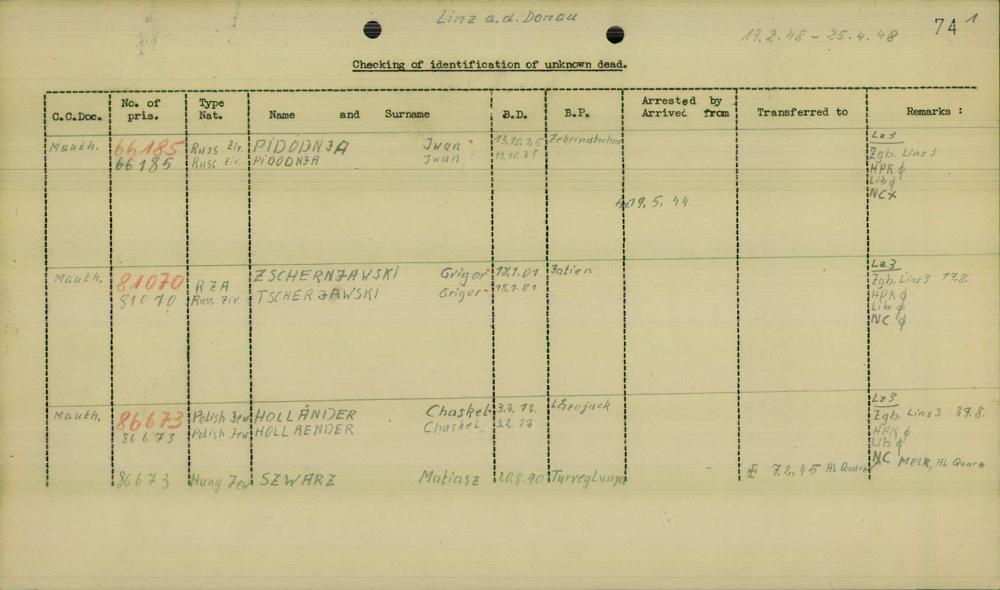 Linz a.d. Donau
19.2.48 - 25.4.48
74 1
Checking of identification of unknown dead.
C.C.Doc. No. of pris. Type Nat. Name and Surname B.D. B.P. Arrested by Arrived from Transferred to Remarks :
Mauth. 66185 Russ Ziv. PIDODNJA Iwan 13.10.25 Lz3
66185 Russ Ziv. PIDODNJA Iwan Zgb. Linz 3
HPK ϕ
Lib ϕ
NCx
19.5.44
Mauth. 81070 RZA ZSCHERNJAWSKI Grigor 18.1.01 Jatien Lz3
81070 Russ Ziv. TSCHERJAWSKI Grigor 18.1.01 Zgb. Linz 3 17.8.
HPK ϕ
Lib ϕ
NC ϕ
Mauth. 86673 Polish Jew HOLLÄNDER Chaskel 3.2.12. Lz3
86673 Polish Jew HOLLAENDER Chaskel 3.2.12 Zgb. Linz 3 27.8.
HPK ϕ
Lib ϕ
NC MELK, AL Quarz
86673 Hung Jew SZWARZ Matiasz 20.8.90 7.2.45 AL Quarz